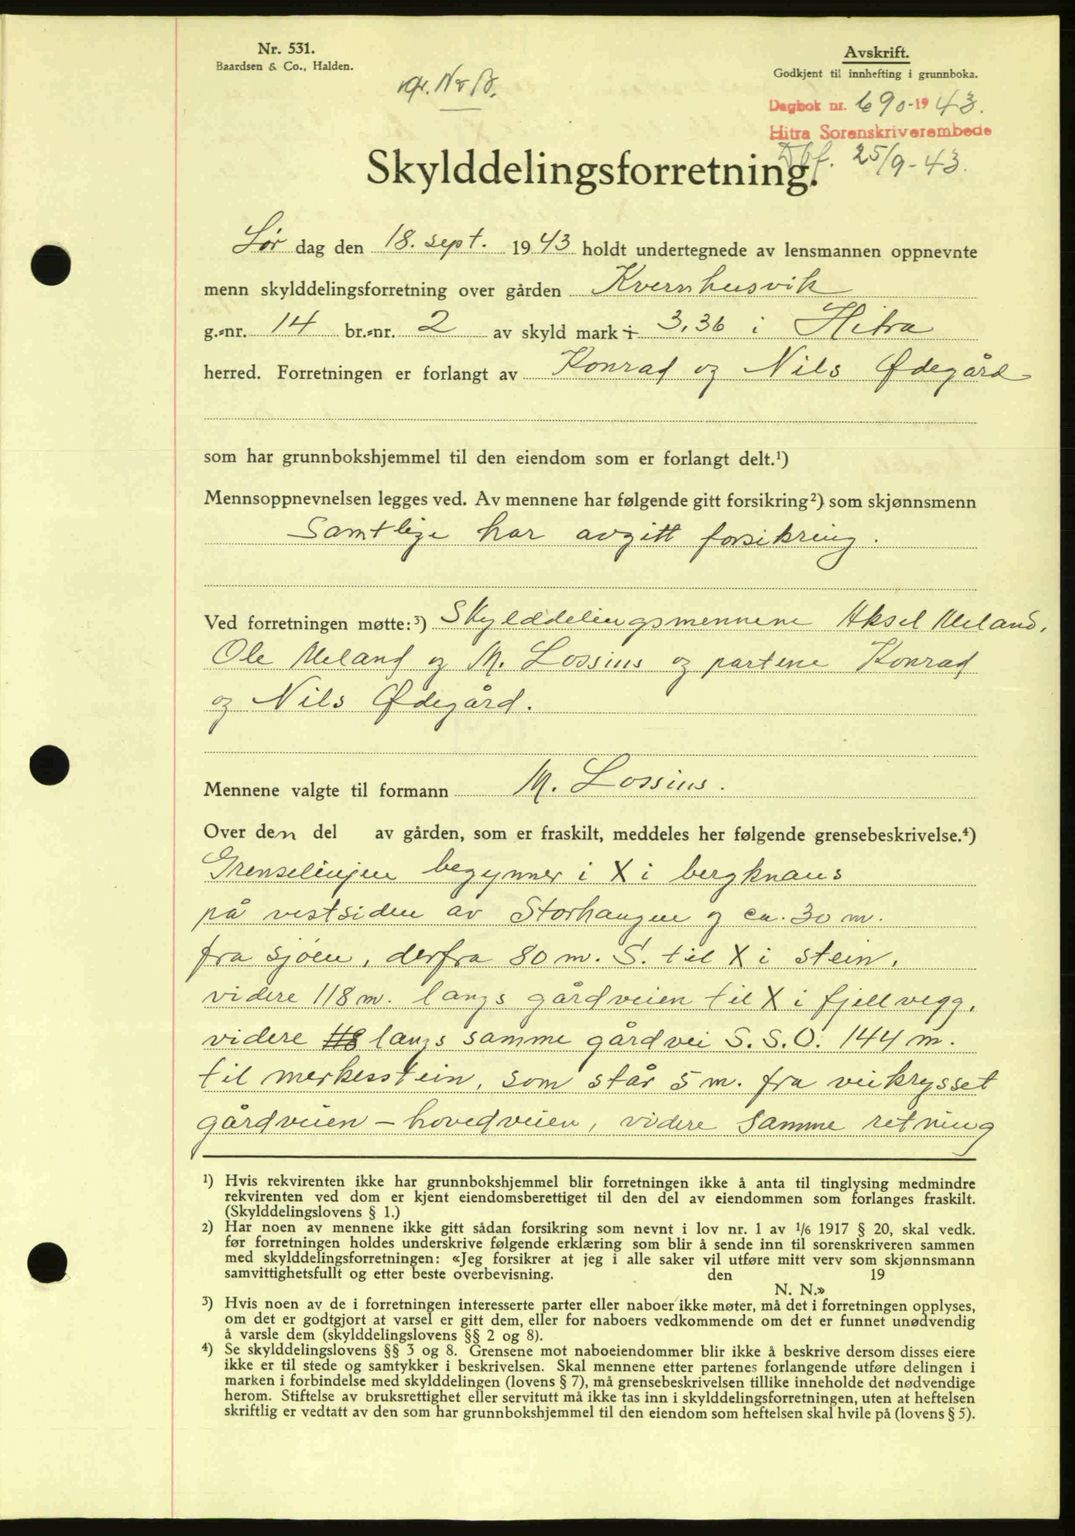 Nr. 531.
Baardsen & Co., Halden.
Avskrift.
Godkjent til innhefting i grunnboka.
Dagbok nr. 690-1943.
Hitra Sorenskriverembede
Dbf. 25/9-43.
Skylddelingsforretning.
Lør dag den 18. sept. 1943 holdt undertegnede av lensmannen oppnevnte
menn skylddelingsforretning over gården Kvernhusvik
g.=nr. 14 br.=nr. 2 av skyld mark 3,36 i Hitra
herred. Forretningen er forlangt av Konrad og Nils Ødegård
som har grunnbokshjemmel til den eiendom som er forlangt delt.¹)
Mennsoppnevnelsen legges ved. Av mennene har følgende gitt forsikring²) som skjønnsmenn
Samtlige har avgitt forsikring.
Ved forretningen møtte:³) Skylddelingsmennene Aksel Meland,
Ole Meland og M. Lossius og partene Konrad
og Nils Ødegård.
Mennene valgte til formann M. Lossius.
Over den del av gården, som er fraskilt, meddeles her følgende grensebeskrivelse.⁴)
Grenselinjen begynner i X i bergknaus
på vestsiden av Storhaugen og ca. 30 m.
fra sjøen, derfra 80 m. S. til X i stein,
videre 118 m. langs gårdveien til X i fjellvegg,
videre langs samme gårdvei S.S.O. 144 m.
til merkesstein, som står 5 m. fra veikrysset
gårdveien - hovedveien, videre samme retning
¹) Hvis rekvirenten ikke har grunnbokshjemmel blir forretningen ikke å anta til tinglysing medmindre
rekvirenten ved dom er kjent eiendomsberettiget til den del av eiendommen som forlanges fraskilt.
(Skylddelingslovens § 1.)
²) Har noen av mennene ikke gitt sådan forsikring som nevnt i lov nr. 1 av 1/6 1917 § 20, skal vedk.
før forretningen holdes underskrive følgende erklæring som blir å sende inn til sorenskriveren sammen
med skylddelingsforretningen: «Jeg forsikrer at jeg i alle saker vil utføre mitt verv som skjønnsmann
samvittighetsfullt og etter beste overbevisning. den 19
N. N.»
³) Hvis noen av de i forretningen interesserte parter eller naboer ikke møter, må det i forretningen opplyses,
om det er godtgjort at varsel er gitt dem, eller for naboers vedkommende om det er funnet unødvendig
å varsle dem (skylddelingslovens §§ 2 og 8).
⁴) Se skylddelingslovens §§ 3 og 8. Grensene mot naboeiendommer blir ikke å beskrive dersom disses eiere
ikke er til stede og samtykker i beskrivelsen. Skal mennene etter partenes forlangende utføre delingen i
marken i forbindelse med skylddelingen (lovens § 7), må grensebeskrivelsen tillike inneholde det nødvendige
herom. Stiftelse av bruksrettighet eller servitutt må ikke tas inn i skylddelingsforretningen, uten at heftelsen
skriftlig er vedtatt av den som har grunnbokshjemmel til den eiendom som heftelsen skal hvile på (lovens § 5).